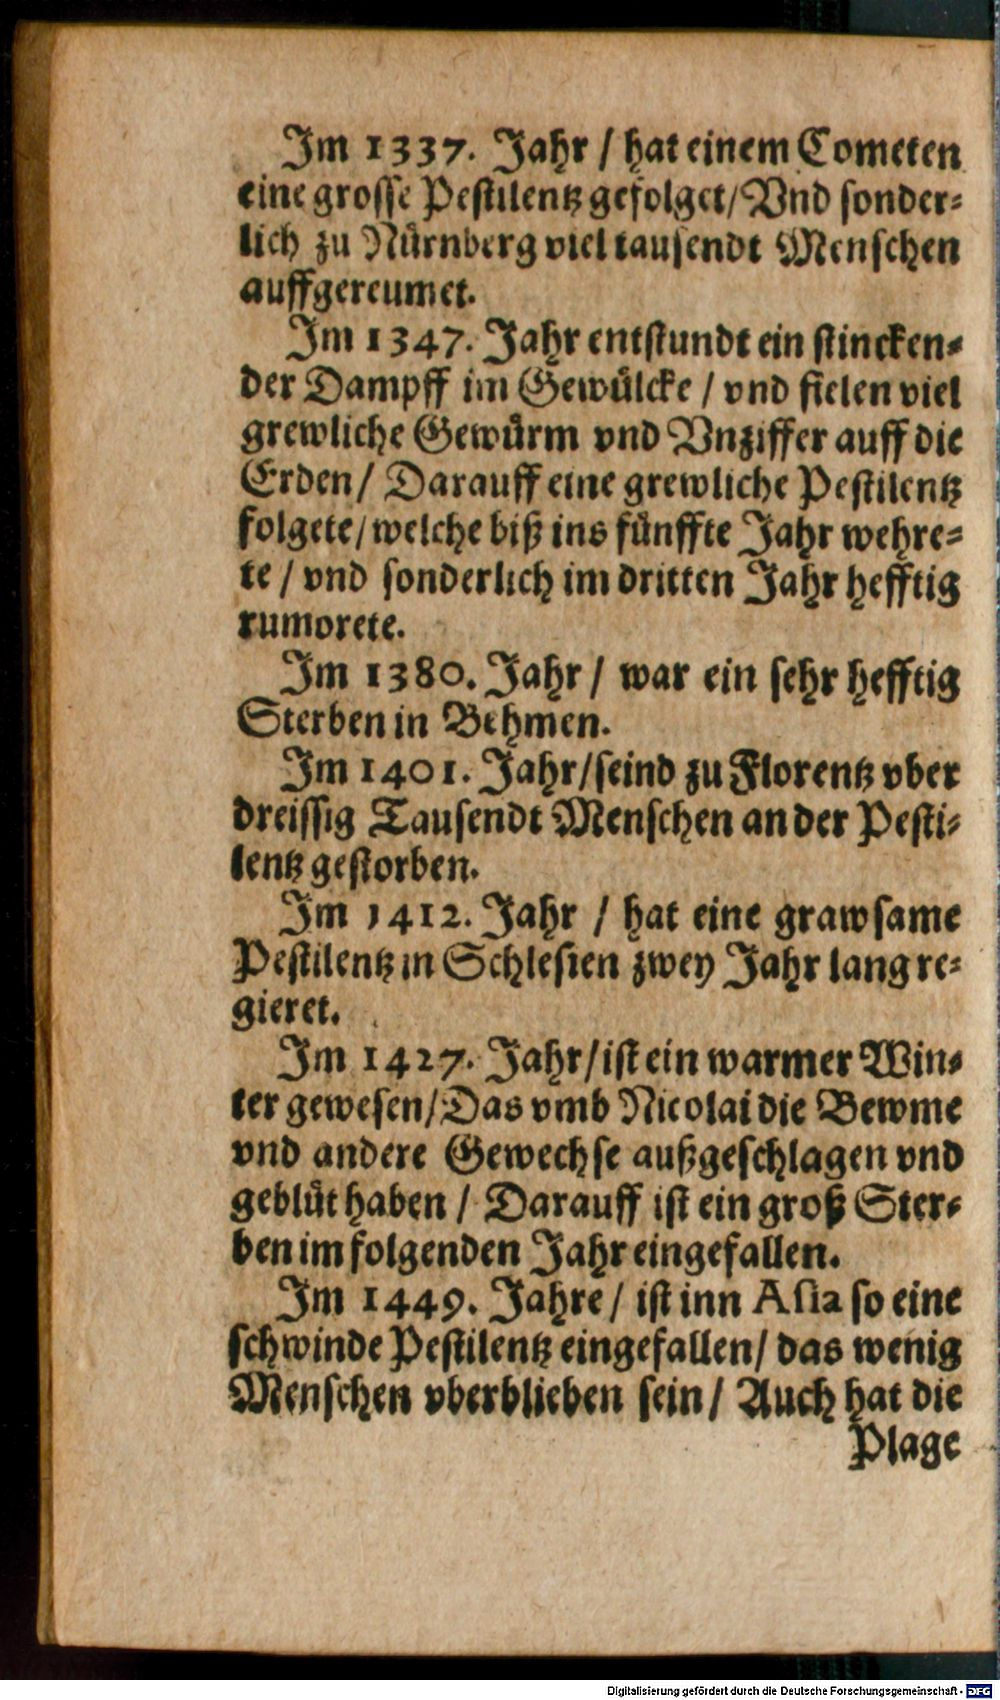 Im 1337. Jahr / hat einem Cometen
eine grosse Pestilentz gefolget/ Vnd sonder⸗
lich zu Nuͤrnberg viel tausendt Menschen
auffgereumet.
Im 1347. Jahr entstundt ein stincken⸗
der Dampff im Gewuͤlcke / vnd fielen viel
grewliche Gewuͤrm vnd Vnziffer auff die
Erden/ Darauff eine grewliche Pestilentz
folgete/ welche biß ins fuͤnffte Jahr wehre⸗
te / vnd sonderlich im dritten Jahr hefftig
rumorete.
Im 1380. Jahr / war ein sehr hefftig
Sterben in Behmen.
Im 1401. Jahr/ seind zu Florentz vber
dreissig Tausendt Menschen an der Pesti⸗
lentz gestorben.
Im 1412. Jahr / hat eine grawsame
Pestilentz in Schlesien zwey Jahr lang re⸗
gieret.
Im 1427. Jahr/ ist ein warmer Win⸗
ter gewesen/ Das vmb Nicolai die Bewme
vnd andere Gewechse außgeschlagen vnd
gebluͤt haben / Darauff ist ein groß Ster⸗
ben im folgenden Jahr eingefallen.
Im 1449. Jahre / ist inn Asia so eine
schwinde Pestilentz eingefallen/ das wenig
Menschen vberblieben sein / Auch hat die
Plage
Digitalisierung gefördert durch die Deutsche Forschungsgemeinschaft - DFG